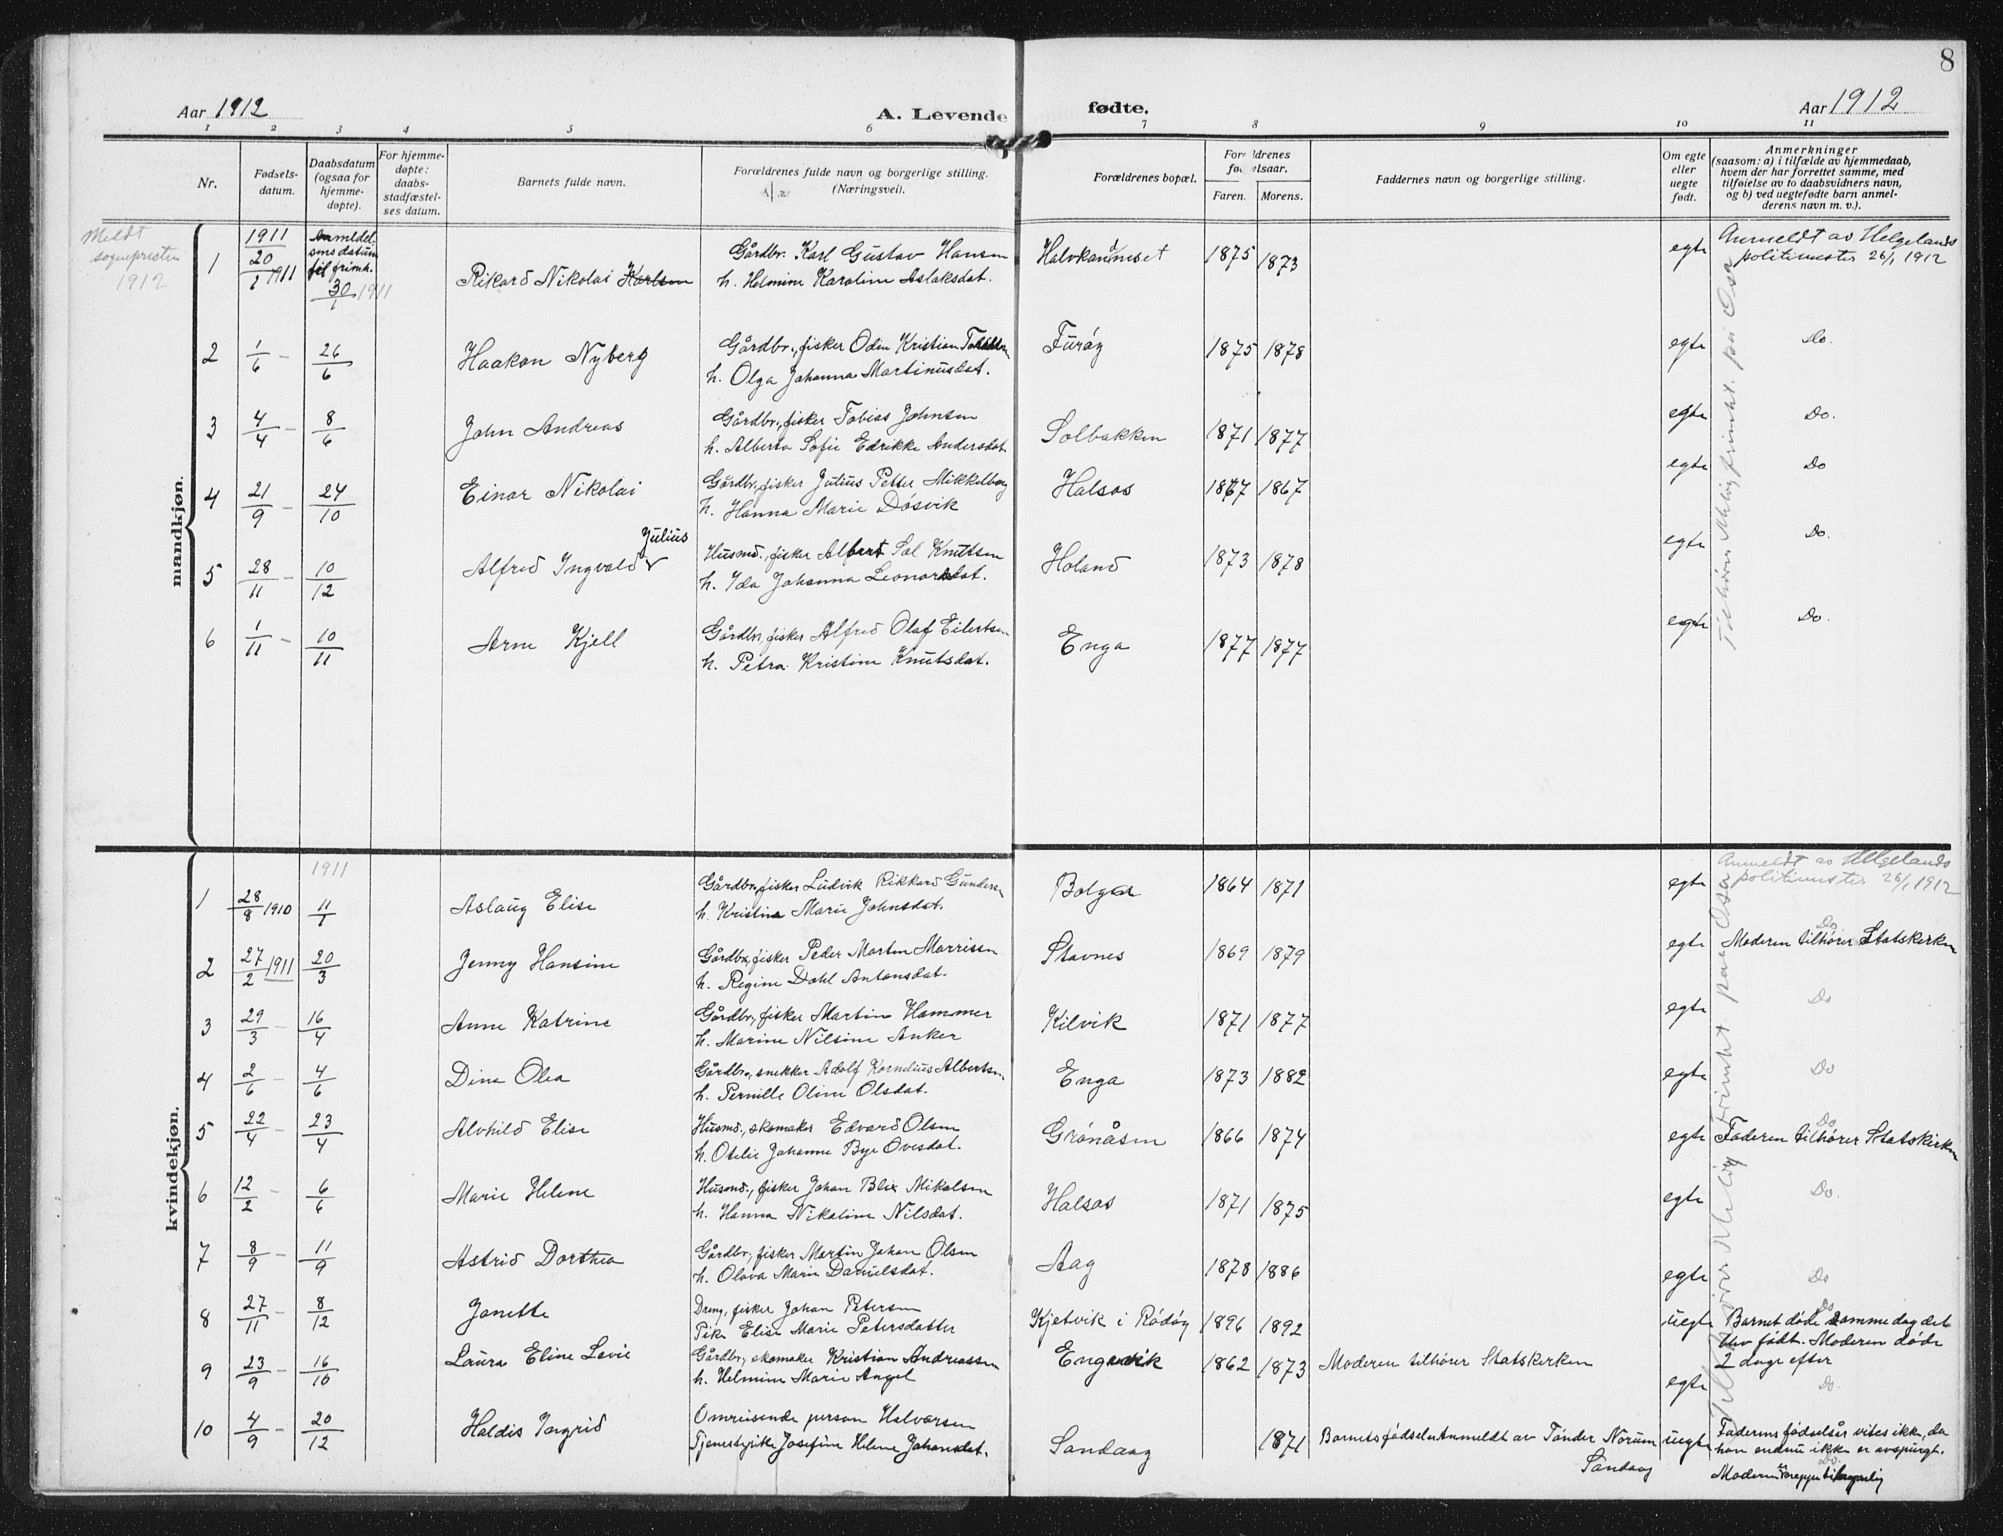 8
Aar 1912
A. Levende fødte.
Aar 1912
1 2 3 4 5 6 7 8 9 10 11
Nr.
Fødsels-
datum.
Daabsdatum
(ogsaa for
hjemme-
døpte).
For hjemme-
døpte:
daabs-
stadfæstel-
ses datum.
Barnets fulde navn.
Forældrenes fulde navn og borgerlige stilling.
(Næringsvei).
Forældrenes bopæl.
Forældrenes
fødselsaar.
Faren. Morens.
Faddernes navn og borgerlige stilling.
Om egte
eller
uegte
født.
Anmerkninger
(saasom: a) i tilfælde av hjemmedaab,
hvem der har forrettet samme, med
tilføielse av to daabsvidners navn,
og b) ved uegtefødte barn anmel-
derens navn m. v.).
Meldt
sognepresten
1912
mandkjøn.
1 1911 20/1 1911 anmeldel-
sms datum
til frimh.
30/1 1911
Rikard Nikolai Karlsen
Gårdbr. Karl Gustav Hansen
h. Helmine Karoline Aslaksdat.
Halvkannneset 1875 1873 egte
Anmeldt av Helgelands
politimester 26/1 1912
2 1/6 – 26/6 Haakon Nyberg
Gårdbr., fisker Odin Kristian
h. Olga Johanna Martinusdat.
Furøy 1875 1878 egte Do.
3 4/4 – 8/6 John Andreas
Gårdbr., fisker Tobias Johnsen
h. Alberta Sofie Edrikke Andersdat
Solbakken 1871 1877 egte Do.
4 21/9 – 24/10 Einar Nikolai
Gårdbr., fisker Julius Petter Mikkelborg
h. Hanna Marie Døsvik
Halsos 1867 1867 egte Do
5 28/11 – 10/12 Alfred Ingvald Julius
Husmd., fisker Albert Sol Knutsen
h. Ida Johanna Leonardsdat.
Holand 1873 1878 egte Do.
6 1/11 – 10/11 Arne Kjell
Gårdbr., fisker Alfred Olaf Eilertsen
h. Petra Kristine Knutsdat.
Enga 1877 1877 egte Do.
kvindekjøn.
1911
1 28/8 1910 11/1 Aslaug Elise
Gårdbr., fisker Ludvik Rikkard Gundersn
h. Kristina Marie Johnsdat.
Bolga 1864 1871 egte
Anmeldt av Helgelands
politimester 26/1 1912
2 27/2 1911 20/3 Jenny Hansine
Gårdbr., fisker Peder Morten Morrissen
h. Regine Dahl Antonsdat.
Stavnes 1869 1879 egte Do
Moderen tilhører Statskirken
3 29/3 – 16/4 Anne Katrine
Gårdbr., fisker Martin Hammer
h. Marine Nilsine Anker
Kilvik 1871 1877 egte Do
4 2/6 – 4/6 Dina Olea
Gårdbr., snekker Adolf Kornelius Albertsn.
h. Pernille Oline Olsdat.
Enga 1873 1882 egte Do
5 22/4 – 23/4 Alvhild Elise
Husmd., skomaker Edvard Olsen
h. Otelie Johanne Bye Ovesdat.
Grønåsen 1866 1874 egte Do
Faderen tilhører Statskirken
6 12/2 – 6/6 Marie Helene
Husmd., fisker Johan Blix Mikalsen
h. Hanna Nikoline Nilsdat.
Halsos 1871 1875 egte Do.
7 8/9 – 11/9 Astrid Dorthea
Gårdbr., fisker Martin Johan Olsen
h. Olava Marie Danielsdat.
Aag 1878 1886 egte Do
8 27/11 – 8/12 Janette
Dreng, fisker Johan Petersen
Pike Elise Marie Petersdatter
Kjetvik i Rødøy 1896 1892 uegte Do
Barnet døde samme dag det
blev født. Moderen døde
2 dage efter
9 23/9 – 16/10 Laura Eline Levie
Gårdbr., skomaker Kristian Andreassen
h. Helmine Marie Angel
Engavik 1862 1873 Moderen tilhører Statskirken egte Do.
10 4/9 – 20/12 Haldis Ingrid
Omreisende person Halvorsen
Tjenestepike Josefine Helene Johansdat.
Sandaag 1871 Barnets fødsel Anmeldt av Tønder Norum
Sandaag
uegte
Faderens fødselsår vites ikke, da
han endnu ikke er avspurgt.
Do.